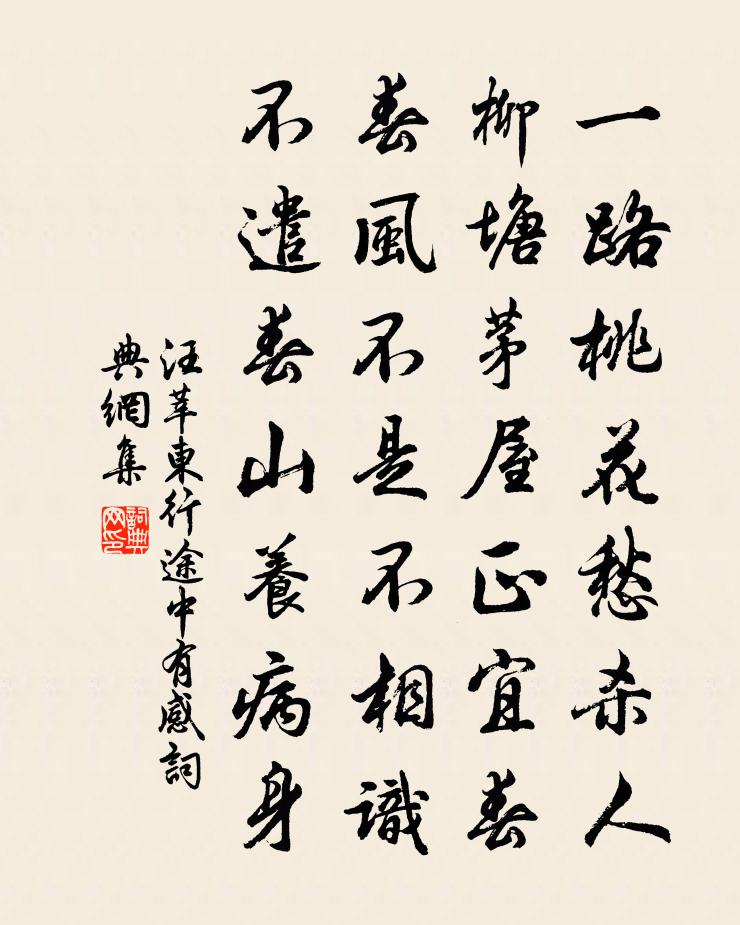 一路桃花愁杀人
柳塘茅屋正宜春
春風不是不相識
不遣春山養病身
汪莘東行途中有感詞
典網集
詞典
网印